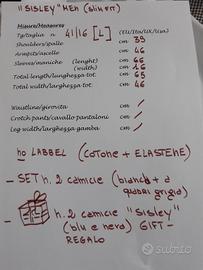 "SISLEY" MEN (SLIM FIT)
Misure/Measures
Tg/taglia n 41/16 [L] (EU/Ita/UK/Usa)
Shoulders/spalle cm 39
Armpits/ascelle cm 46
Sleeves/maniche (lenght) cm 66
(width) cm 16
Total lenght/lunghezza tot. cm 65
Total width/larghezza tot. cm 46
Waistline/girovita cm /
Crotch pants/cavallo pantaloni cm /
Leg width/larghezza gamba cm /
no LABBEL (COTONE + ELASTENE)
- SET n. 2 camicie (bianca + a
quadri grigia)
- n. 2 camicie "Sisley"
(blu e nera) GIFT-
REGALO
Subito